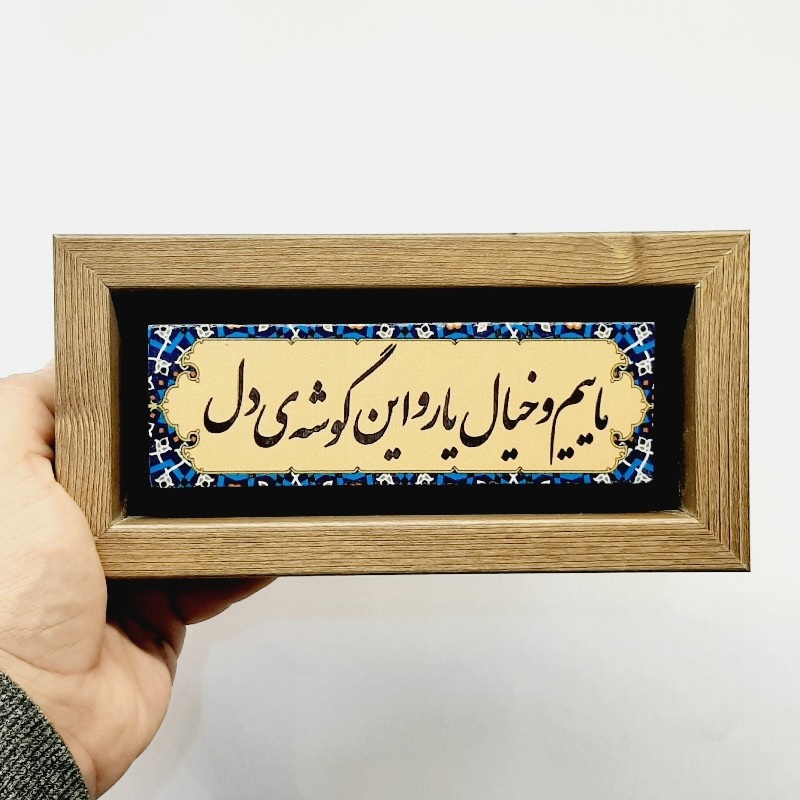 ماییم و خیال یار و این گوشه‌ی دل